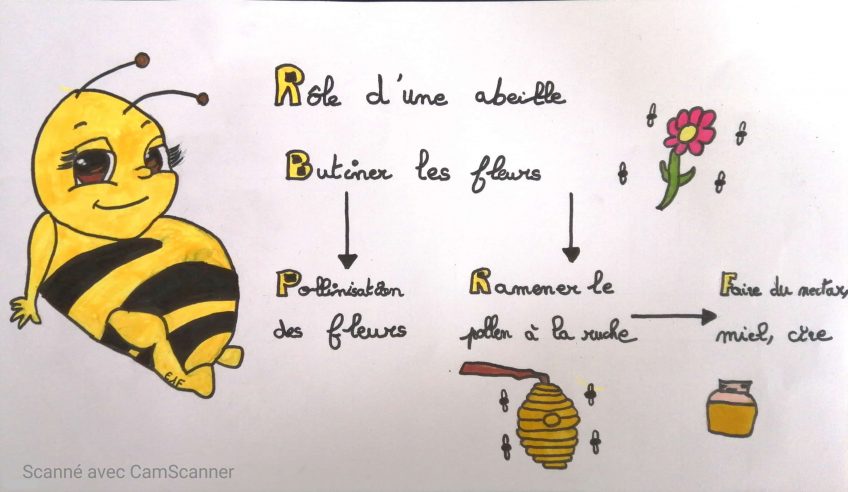 Rôle d'une abeille
Butiner les fleurs
Pollinisation
des fleurs
Ramener le
pollen à la ruche
Faire du nectar,
miel, cire
EAF
Scanné avec CamScanner